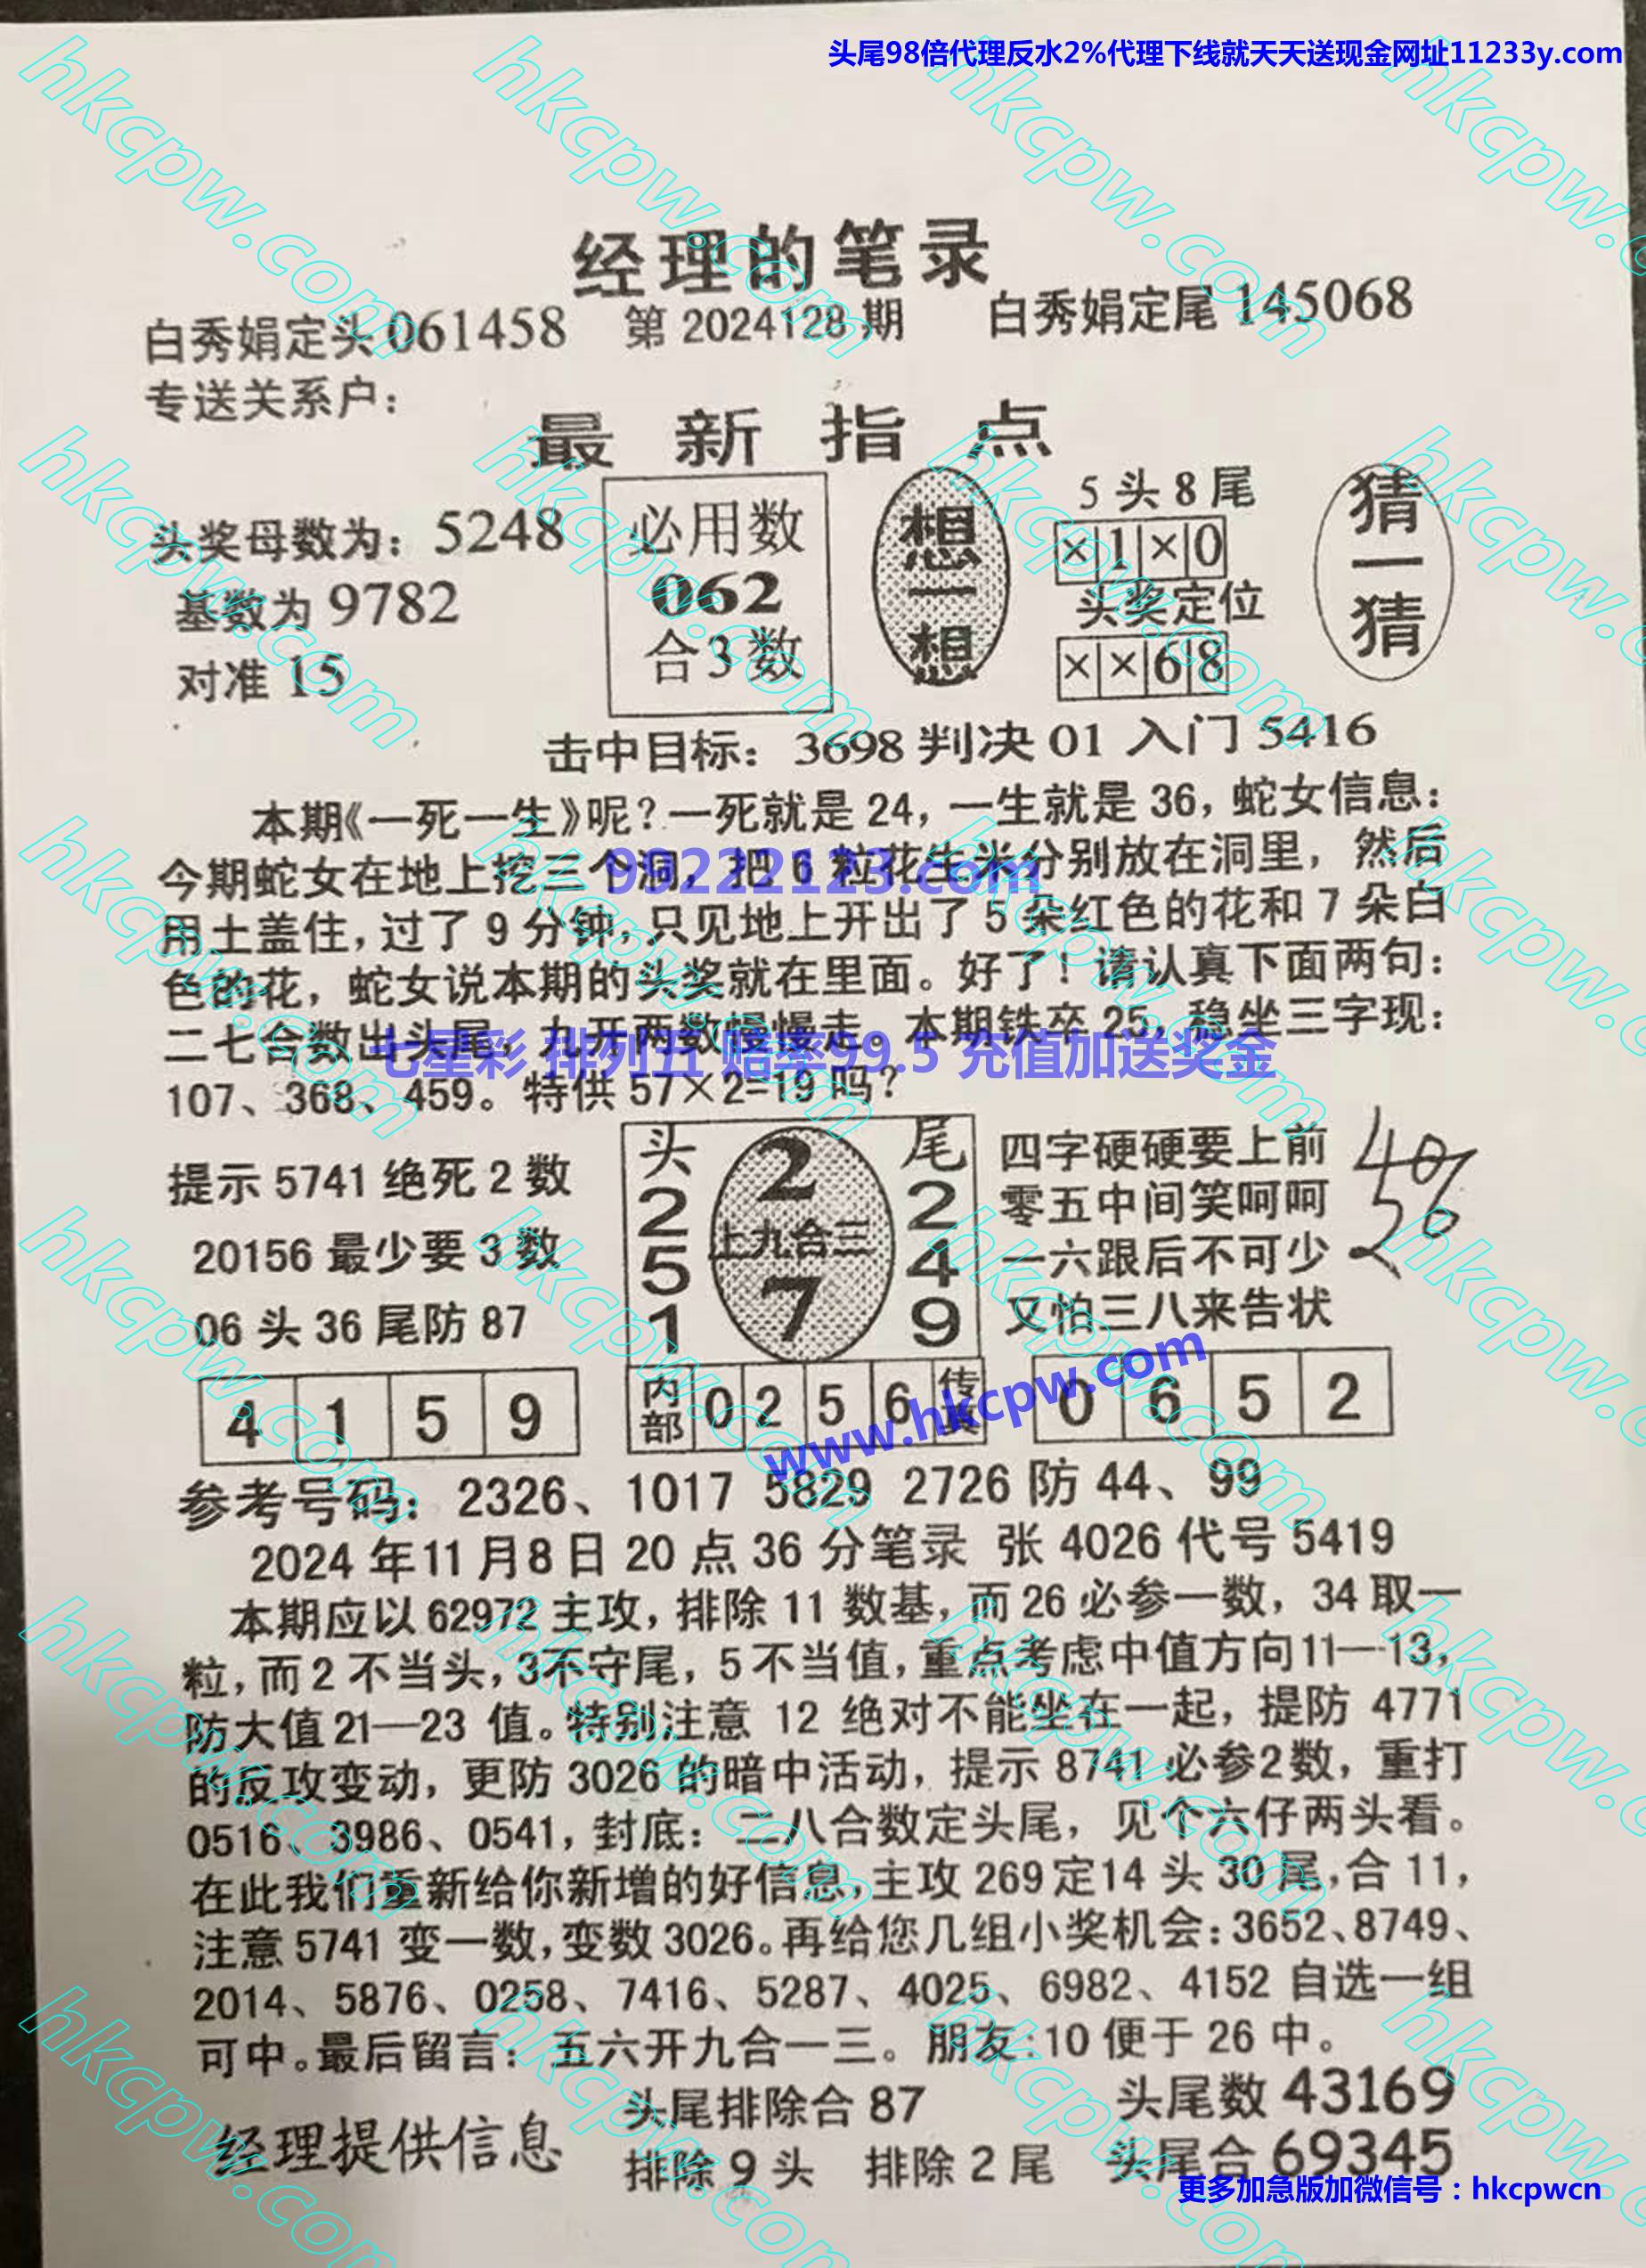 头尾98倍代理反水2%代理下线就天天送现金网址11233y.com
经理的笔录
白秀娟定头 061458 第 2024128 期 白秀娟定尾 145068
专送关系户：
最 新 指 点
头奖母数为：5248
基数为 9782
对准 15
必用数
062
合3数
想一想
5 头 8 尾
× 1 × 0
头奖定位
× × 6 8
猜一猜
击中目标：3698 判决 01 入门 5416
本期《一死一生》呢？一死就是 24，一生就是 36，蛇女信息：
今期蛇女在地上挖三个洞，把 6 粒花生米分别放在洞里，然后
99222123.com
用土盖住，过了 9 分钟，只见地上开出了 5 朵红色的花和 7 朵白
色的花，蛇女说本期的头奖就在里面。好了！请认真下面两句：
二七合数出头尾，九开两数慢慢走。本期铁卒 25，稳坐三字现：
七星彩 排列五 赔率99.5 充值加送奖金
107、368、459。特供 57×2=19 吗？
提示 5741 绝死 2 数
20156 最少要 3 数
06 头 36 尾防 87
头
2
5
1
2
上九合三
7
尾
2
4
9
四字硬硬要上前
零五中间笑呵呵
一六跟后不可少
又怕三八来告状
4 1 5 9
内部 0 2 5 6 传真
0 6 5 2
www.hkcpw.com
参考号码：2326、1017 5829 2726 防 44、99
2024 年 11 月 8 日 20 点 36 分笔录 张 4026 代号 5419
本期应以 62972 主攻，排除 11 数基，而 26 必参一数，34 取一
粒，而 2 不当头，3不守尾，5 不当值，重点考虑中值方向11—13，
防大值 21—23 值。特别注意 12 绝对不能坐在一起，提防 4771
的反攻变动，更防 3026 的暗中活动，提示 8741 必参2数，重打
0516、3986、0541，封底：二八合数定头尾，见个六仔两头看。
在此我们重新给你新增的好信息，主攻 269 定 14 头 30 尾，合 11，
注意 5741 变一数，变数 3026。再给您几组小奖机会：3652、8749、
2014、5876、0258、7416、5287、4025、6982、4152 自选一组
可中。最后留言：五六开九合一三。朋友：10 便于 26 中。
经理提供信息
头尾排除合 87 头尾数 43169
排除 9 头 排除 2 尾 头尾合 69345
更多加急版加微信号：hkcpwcn